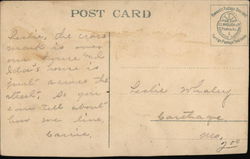 POST CARD
Leslie, the cross
mark is over
our house and
Ida's house is
just across the
street. So you
can tell about
how we live.
Carrie.
Leslie Whaley
Carthage
Mo.